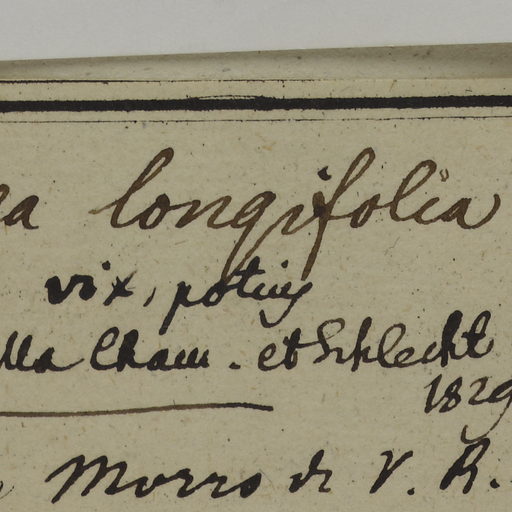 a longifolia
vix, potius
lla Cham. et Schlecht
1829
Morro de V. R.